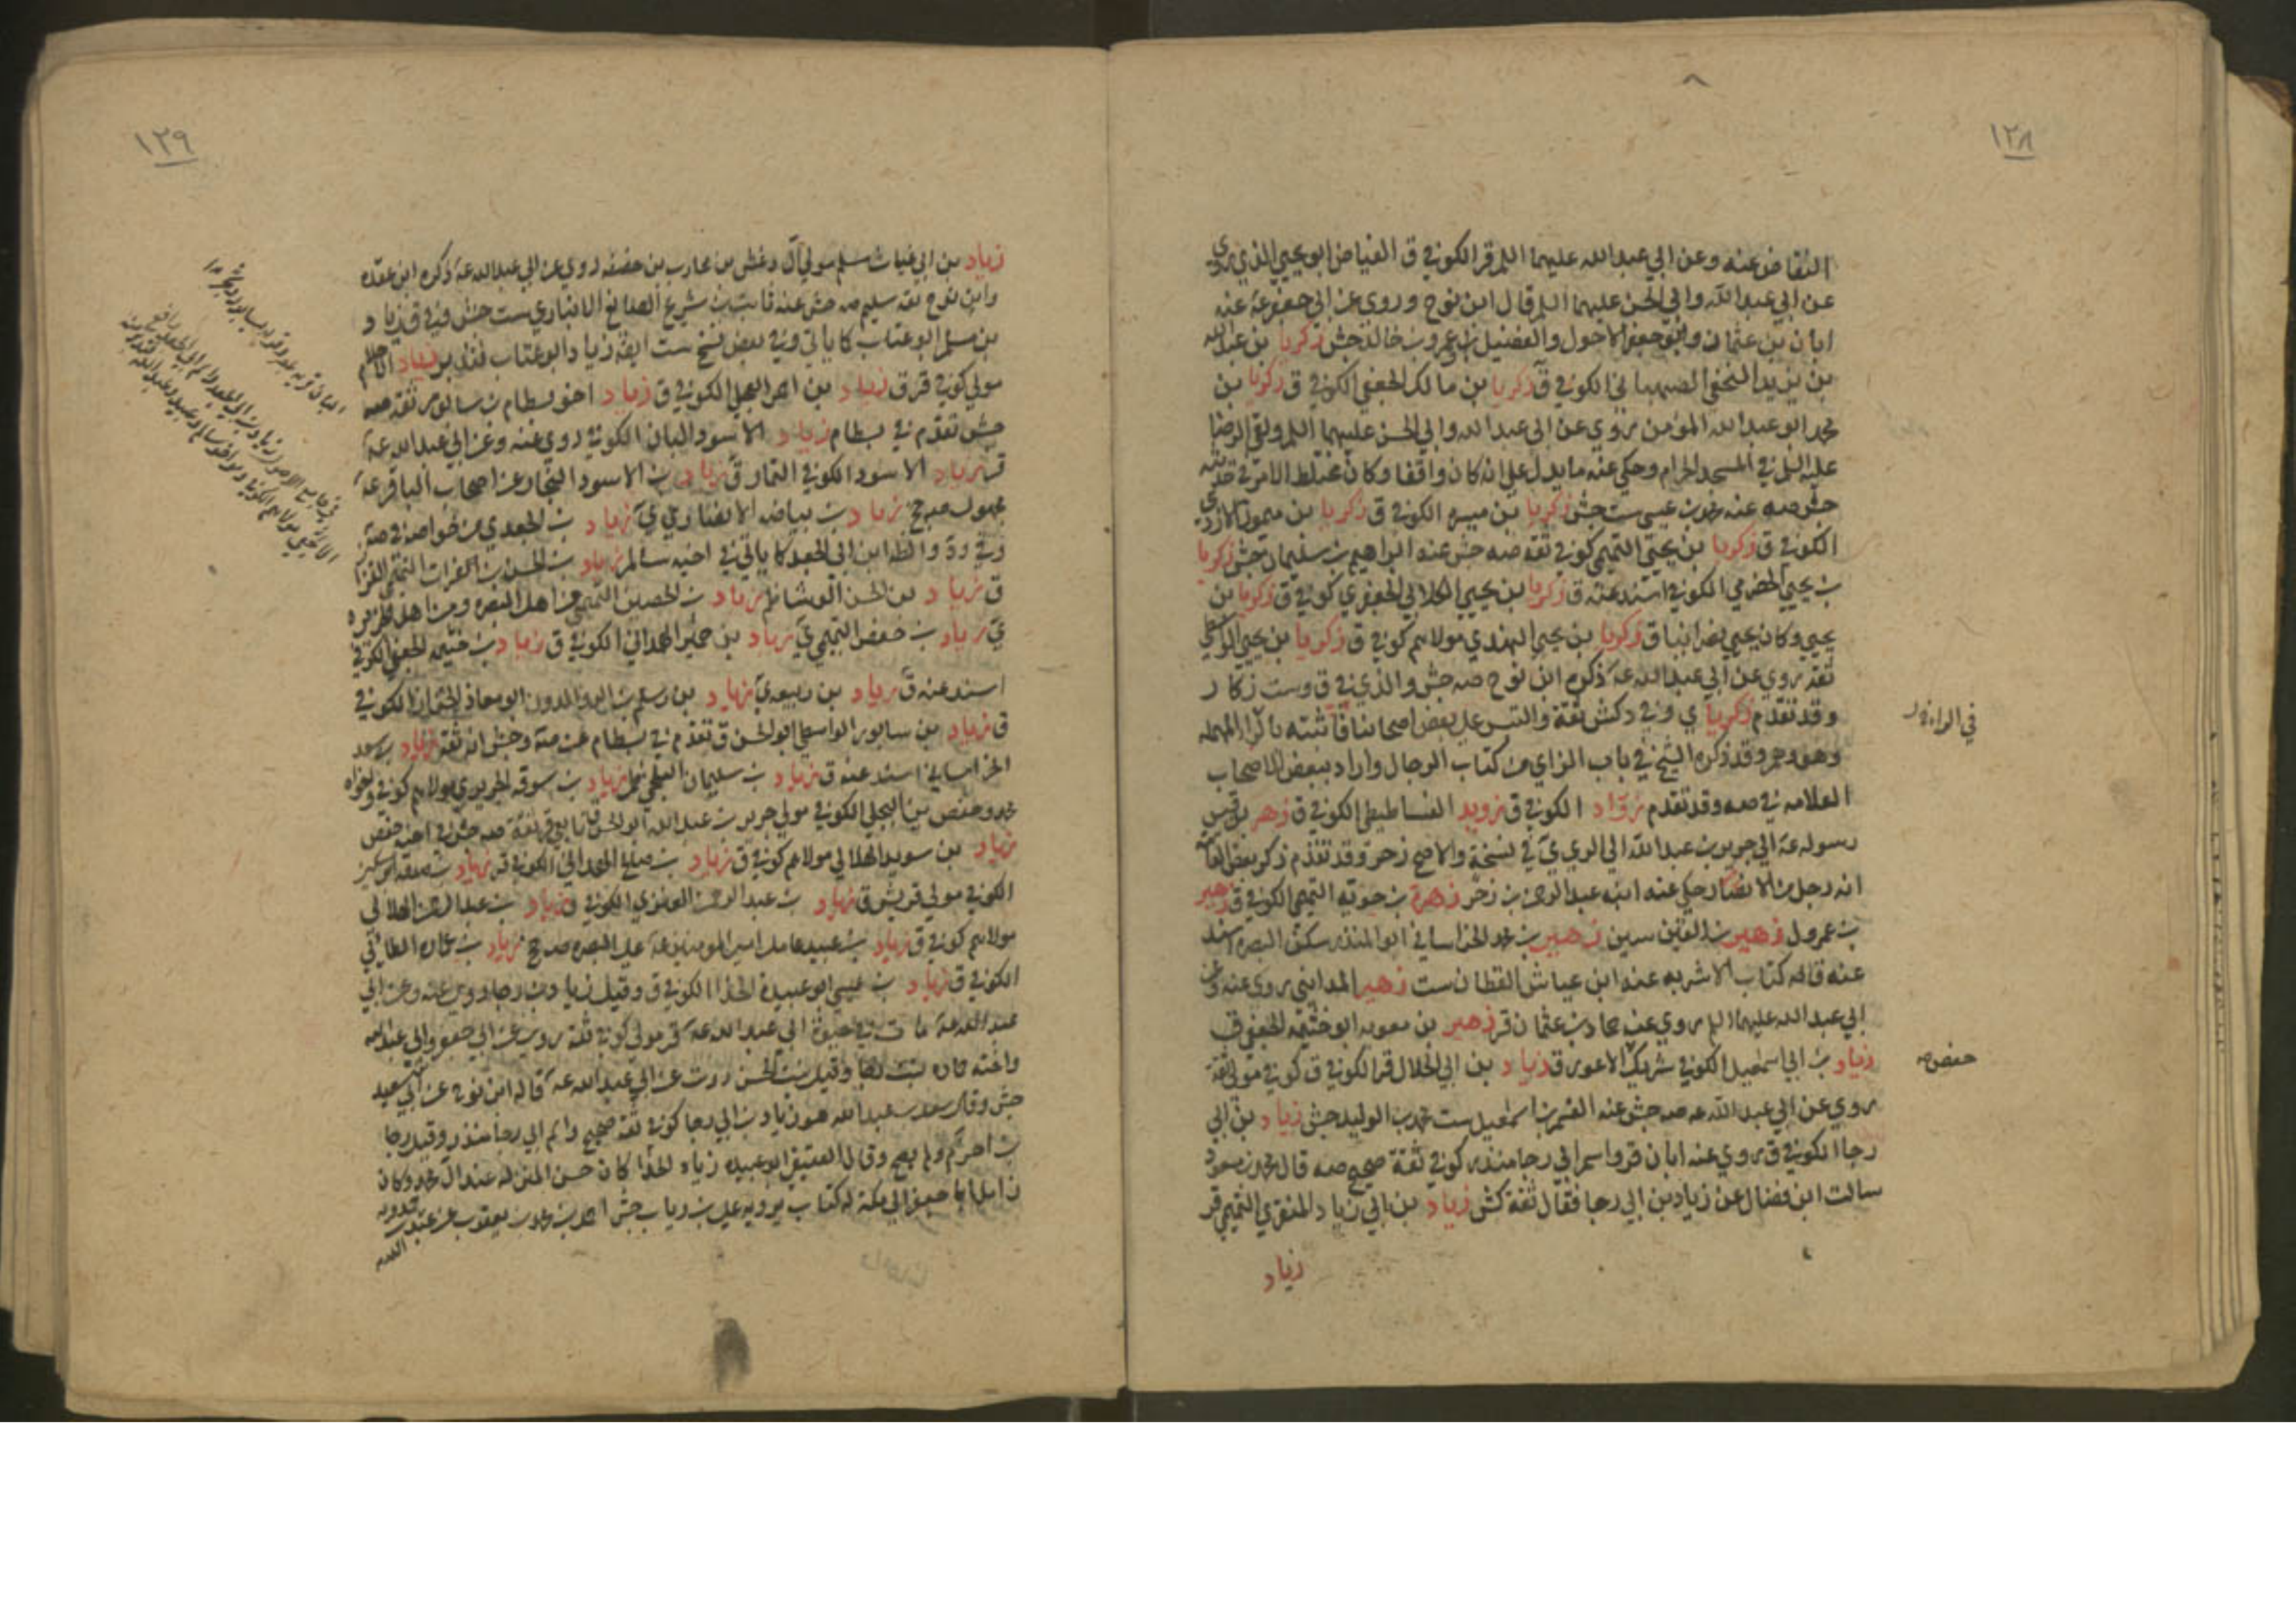 ١٢٨
النقاض عنه وعن ابي عبد الله عليهما السلم قر الكوفي ق الفياض ابو يحيى الذي يروي
عن ابي عبد الله وابي الحسن عليهما السلم قال ابن نوح وروى عن ابي جعفر عنه
ابان بن عثمان وابو جعفر الاحول والفضيل بن عمرو بن خالد جش زكريا بن عبد الله
بن يزيد النخعي الصهباني الكوفي ق زكريا بن مالك الجعفي الكوفي ق زكريا بن
محمد ابو عبد الله المؤمن روى عن ابي عبد الله وابي الحسن عليهما السلم ولقي الرضا
عليه السلم في المسجد الحرام وحكي عنه ما يدل على انه كان واقفا وكان مختلط الامر في حديثه
جش صه عنه محمد بن عيسى ست جش زكريا بن ميسره الكوفي ق زكريا بن ميمون الازدي
الكوفي ق زكريا بن يحيى التميمي كوفي ثقه صه جش عنه ابراهيم بن سليمان جش زكريا
بن يحيى الحضرمي الكوفي اسند عنه ق زكريا بن يحيى الكلابي الجعفري كوفي ق زكريا بن
يحيى وكان يحيى نصرانيا ق زكريا بن يحيى النهدي مولاهم كوفي ق زكريا بن يحيى الواسطي
ثقه روى عن ابي عبد الله عه ذكره ابن نوح صه جش والذي في ق وست زكار
وقد تقدم زكريا ي وفي د كش ثقة والتبس على بعض اصحابنا فاثبته بالراء المهمله
وهو وهم وقد ذكره الشيخ في باب الزاي من كتاب الرجال واراد ببعض الاصحاب
العلامه في صه وقد تقدم زواد الكوفي ق زويد الفساطيطي الكوفي ق زهر بن قيس
رسوله عه الى جرير بن عبد الله الى الري ي في نسخة والاصح زحر وقد تقدم ذكر بعض العامه
انه رجل من الانصار حكي عنه ابنه عبد الرحمن بن زخر زهرة بن حويه التميمي الكوفي ق زهير
بن عمرو ل زهير بن القين سين زهير بن محمد الخراساني ابو المنذر سكن البصره اسند
عنه ق له كتاب الاشربه عنه ابن عياش القطان ست زهير المدايني روى عنه وعن
ابي عبد الله عليهما السلم روى عنه حماد بن عثمان قر زهير بن معويه ابو خثيمه الجعفي ق
زياد بن ابي اسمعيل الكوفي شريك الاعور ق زياد بن ابي الحلال قر الكوفي ق كوفي مولى ثقة
روى عن ابي عبد الله عه صه جش عنه القسم بن اسمعيل ست محمد بن الوليد جش زياد بن ابي
رجا الكوفي ق روى عنه ابان قر واسم ابي رجا منذر كوفي ثقة صحيح صه قال محمد بن مسعود
سالت ابن فضال عن زياد بن ابي رجا فقال ثقة كش زياد بن ابي زياد المنقري التميمي قر
زياد
في الراء
حفص
١٢٩
زياد بن ابي غياث مسلم مولى آل دغش من محارب بن خصفه روى عن ابي عبد الله عه ذكره ابن عقده
وابن نوح ثقه سليم صه جش عنه ثابت بن شريح الصائغ الانباري ست جش وفي ق زياد
بن مسلم ابو عتاب كما ياتي وفي بعض نسخ ست ايضه زياد ابو عتاب فتدبر زياد
مولى كوفي قر ق زياد بن احمر العجلي الكوفي ق زياد اخو بسطام بن سابور ثقه صه
جش تقدم في بسطام زياد الاسود البان الكوفي روى عنه وعن ابي عبد الله عه
قر زياد الاسود الكوفي التمار ق زياد بن الاسود النجار من اصحاب الباقر عه
مجهول صه ج زياد بن بياضه الانصاري ي زياد بن الجعدي من خواصه في صه
وفي رده والظه ابن ابي الجعد كما ياتي في اخيه سالم زياد بن الحسن بن الفرات التميمي القزاز
ق زياد بن الحسن الوشا ظم زياد بن الحصين التميمي من اهل البصره
ي زياد بن حفص التميمي ي زياد بن حمير الهمداني الكوفي ق زياد بن خثيمه الجعفي الكوفي
اسند عنه ق زياد بن ربيعه ي زياد بن رستم ابو معاذ الخزاز الكوفي
ق زياد بن سابور الواسطي ابو الحسن ق تقدم في بسطام عن صه وجش انه ثقه زياد بن سعد
الخراساني اسند عنه ق زياد بن سليمان البلخي ظم زياد بن سوقه الجريري مولاهم كوفي واخواه
محمد وحفص سين البجلي الكوفي مولى جرير بن عبد الله ابو الحسن تابعي قر ثقة صه جش في اخيه حفص
زياد بن سويد الهلالي مولاهم كوفي ق زياد بن الهمداني الكوفي ق زياد بن صدقه
الكوفي مولى قريش ق زياد بن عبد الرحمن الكوفي ق زياد بن عبد الرحمن الهلالي
مولاهم كوفي ق زياد بن عبيد عامل امير المومنين عه على البصره صه ج زياد بن عماره الطائي
الكوفي ق زياد بن عيسى ابو عبيدة الحذا الكوفي ق وقيل زياد بن رجا روى عنه وعن ابي
عبد الله عه مات في حيوة ابي عبد الله عه قر مولى كوفي ثقة روى عن ابي جعفر وابي عبد الله
واخته حماده بنت رجا وقيل بنت الحسن روت عن ابي عبد الله عه قاله ابن نوح عن ابي سعيد
جش وقال سعد بن عبد الله هو زياد بن ابي رجا كوفي ثقة صحيح واسم ابي رجا منذر وقيل رجا
بن احرم ولم يصح وقال العقيقي ابو عبيده زياد الحذا كان حسن المنزله عند آل محمد وكان
زامل ابا جعفر الى مكة له كتاب يرويه علي بن رياب جش احمد بن محمد بن يعقوب